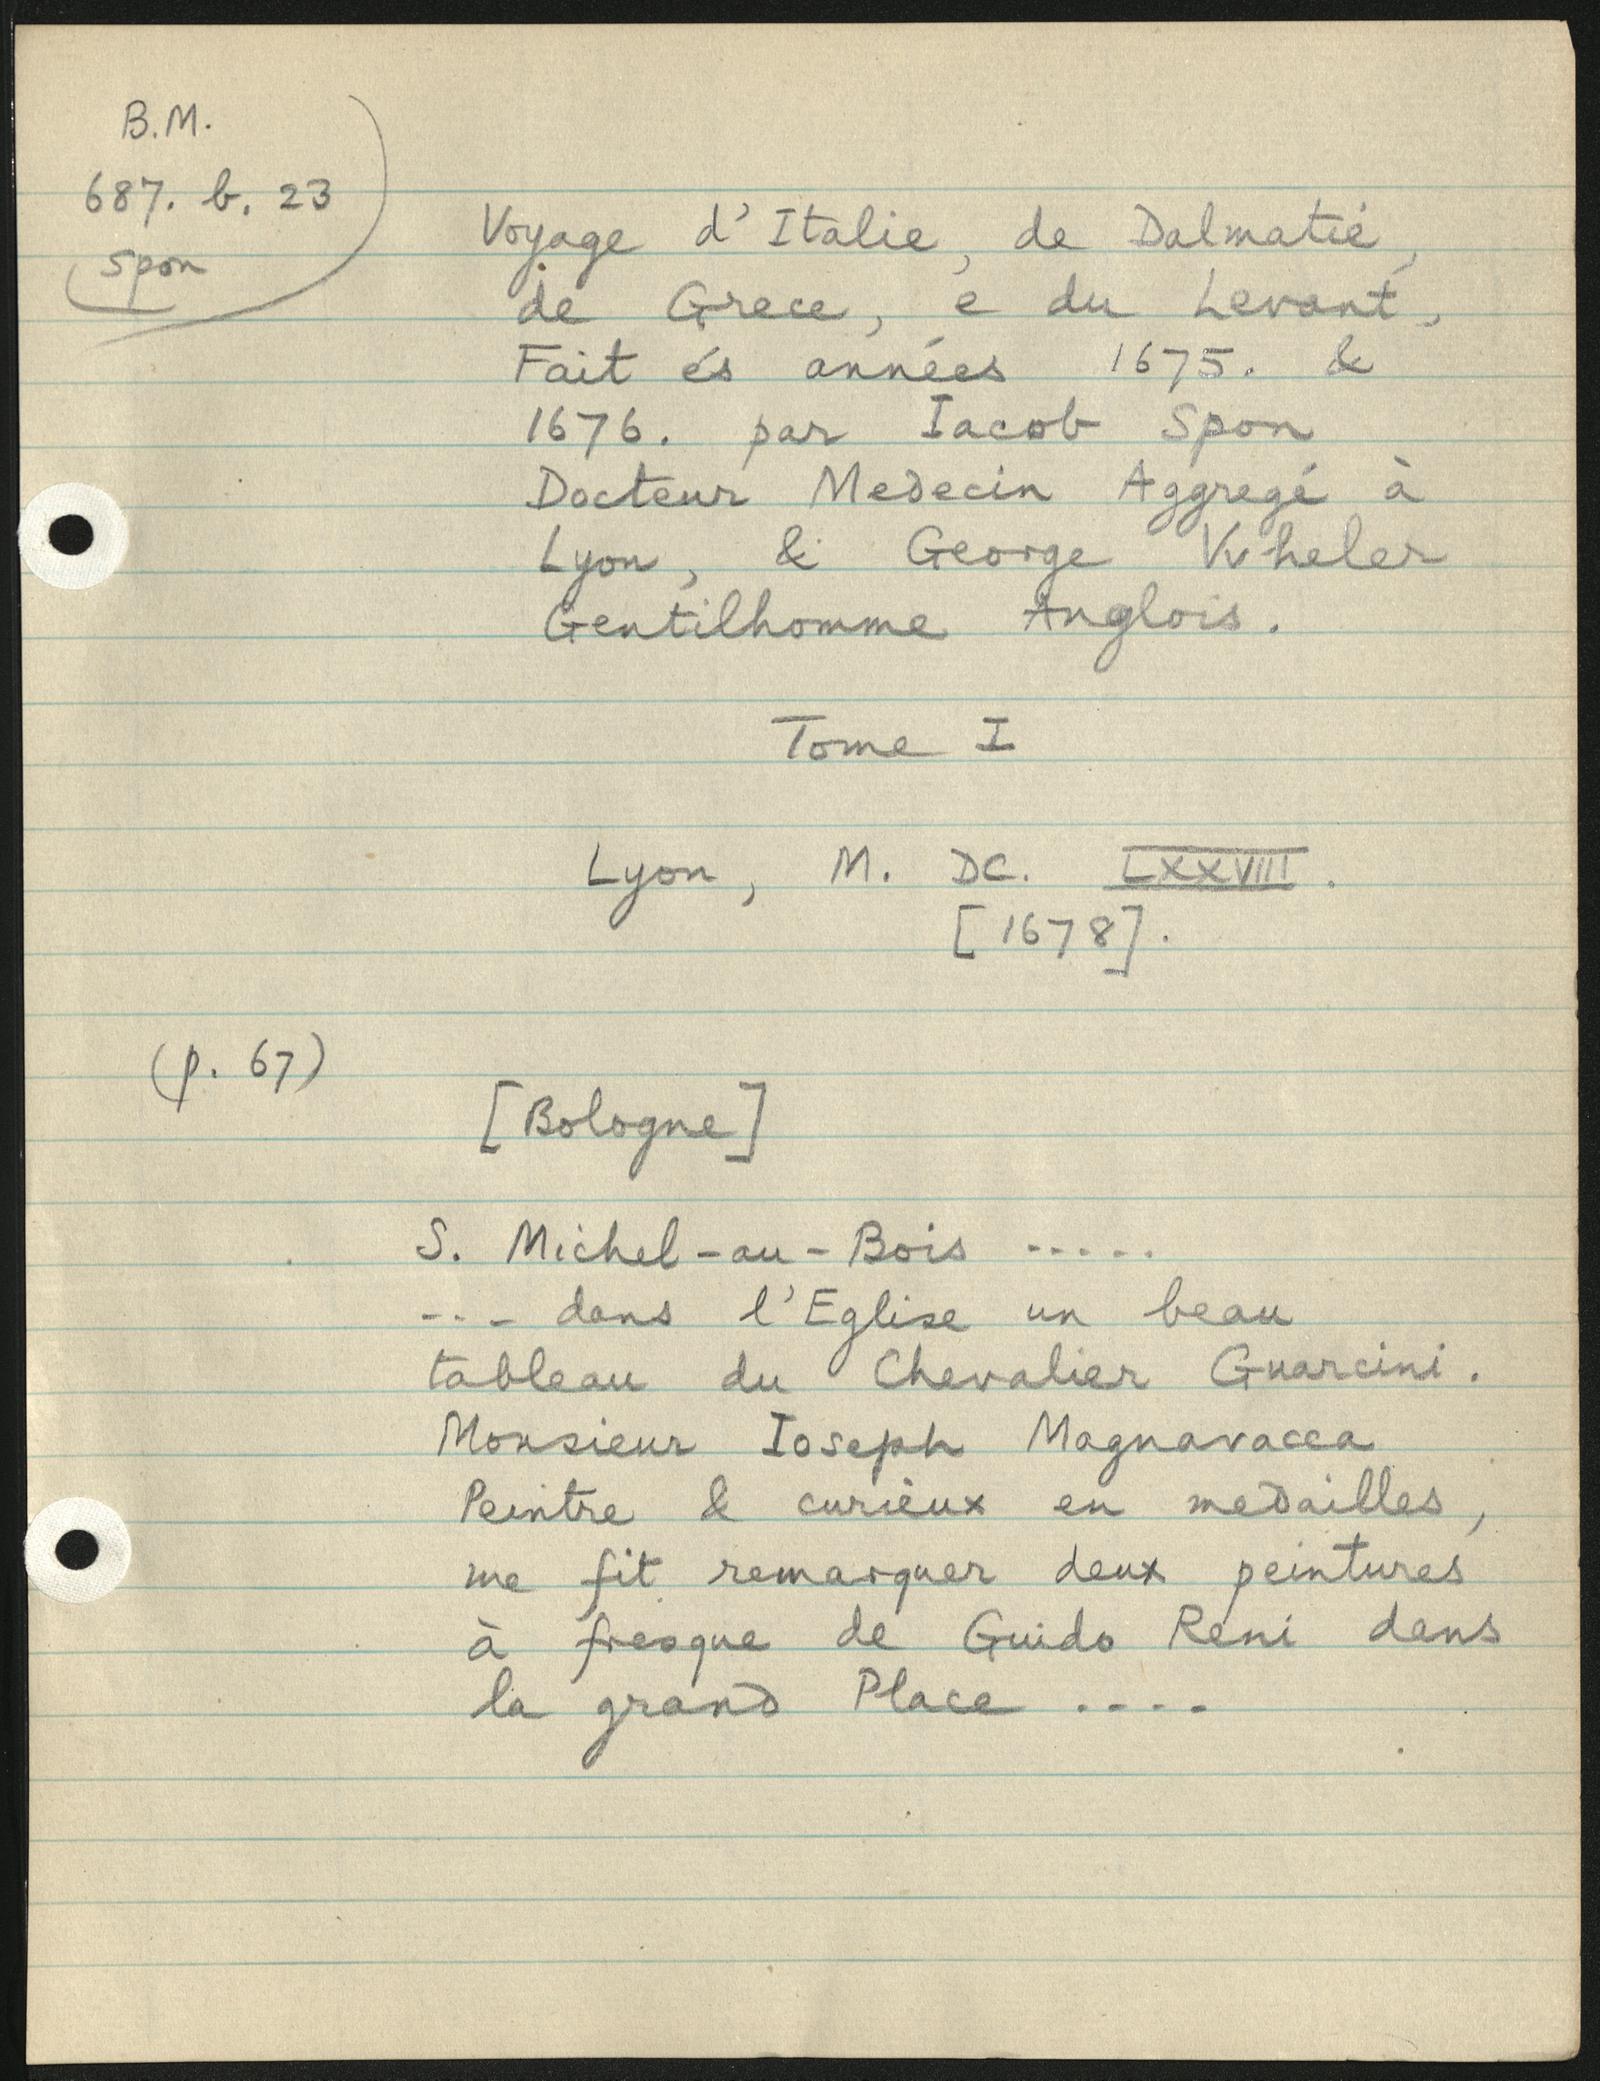 B.M.
687. b. 23
Spon
Voyage d'Italie, de Dalmatie,
de Grece, e du Levant,
Fait és années 1675. &
1676. par Iacob Spon
Docteur Medecin Aggregé à
Lyon, & George VVheler
Gentilhomme Anglois.
Tome I
Lyon, M. DC. LXXVIII.
[1678].
(p. 67)
[Bologne]
S. Michel-au-Bois .....
... dans l'Eglise un beau
tableau du Chevalier Guarcini.
Monsieur Ioseph Magnavacca
Peintre & curieux en medailles,
me fit remarquer deux peintures
à fresque de Guido Reni dans
la grand Place ....